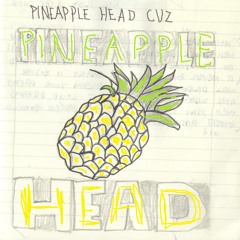 PINEAPPLE HEAD CUZ
PINEAPPLE
HEAD